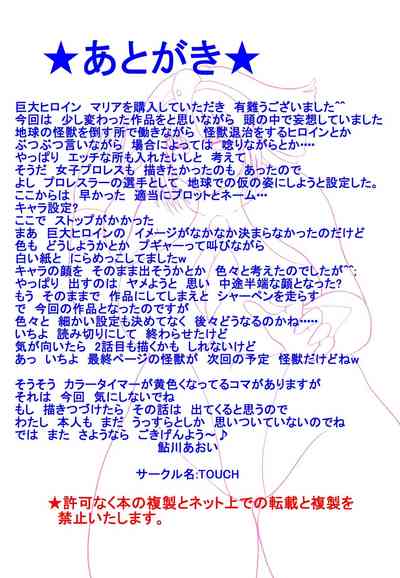 ★あとがき★
巨大ヒロイン マリアを購入していただき 有難うございました^^
今回は 少し変わった作品をと思いながら 頭の中で妄想していました
地球の怪獣を倒す所で働きながら 怪獣退治をするヒロインとか
ぶつぶつ言いながら 場合によっては 唸りながらとか‥‥
やっぱり エッチな所も入れたいしと 考えて
そうだ 女子プロレスも 描きたかったのも あったので
よし プロレスラーの選手として 地球での仮の姿にしようと設定した。
ここからは 早かった 適当にプロットとネーム…
キャラ設定?
ここで ストップがかかった
まあ 巨大ヒロインの イメージがなかなか決まらなかったのだけど
色も どうしようかとか ブギャーって叫びながら
白い紙と にらめっこしてましたw
キャラの顔を そのまま出そうかとか 色々と考えたのでしたが^^;
やっぱり 出すのは ヤメようと 思い 中途半端な顔となった?
もう そのままで 作品にしてしまえと シャーペンを走らす
で 今回の作品となったのですが
色々と 細かい設定も決めてなく 後々どうなるのかね‥‥
いちよ 読み切りにして 終わらせたけど
気が向いたら 2話目も描くかも しれないけど
あっ いちよ 最終ページの怪獣が 次回の予定 怪獣だけどねw
そうそう カラータイマーが黄色くなってるコマがありますが
それは 今回 気にしないでね
もし 描きつづけたら その話は 出てくると思うので
わたし 本人も まだ うっすらとしか 思いついていないのでね
では また さようなら ごきげんよう～♪
鮎川あおい
サークル名:TOUCH
★許可なく本の複製とネット上での転載と複製を
禁止いたします。